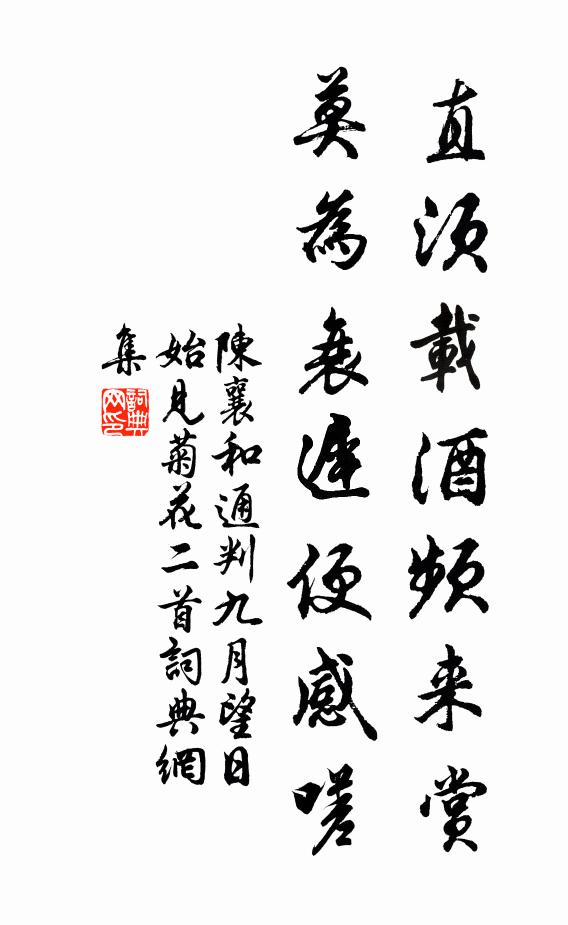 直須載酒頻来賞
莫為衰遲便感嗟
陳襄和通判九月望日
始見菊花二首詞典網
集
詞典
网印